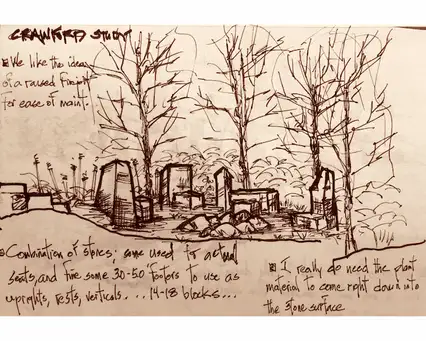 CRAWFORD STUDY
We like the idea
of a raised firepit
for ease of maint.
Combination of stones; some used for actual
seats, and five some 30-50 footers to use as
uprights, rests, verticals... 14-18 blocks...
I really do need the plant
material to come right down into
the stone surface